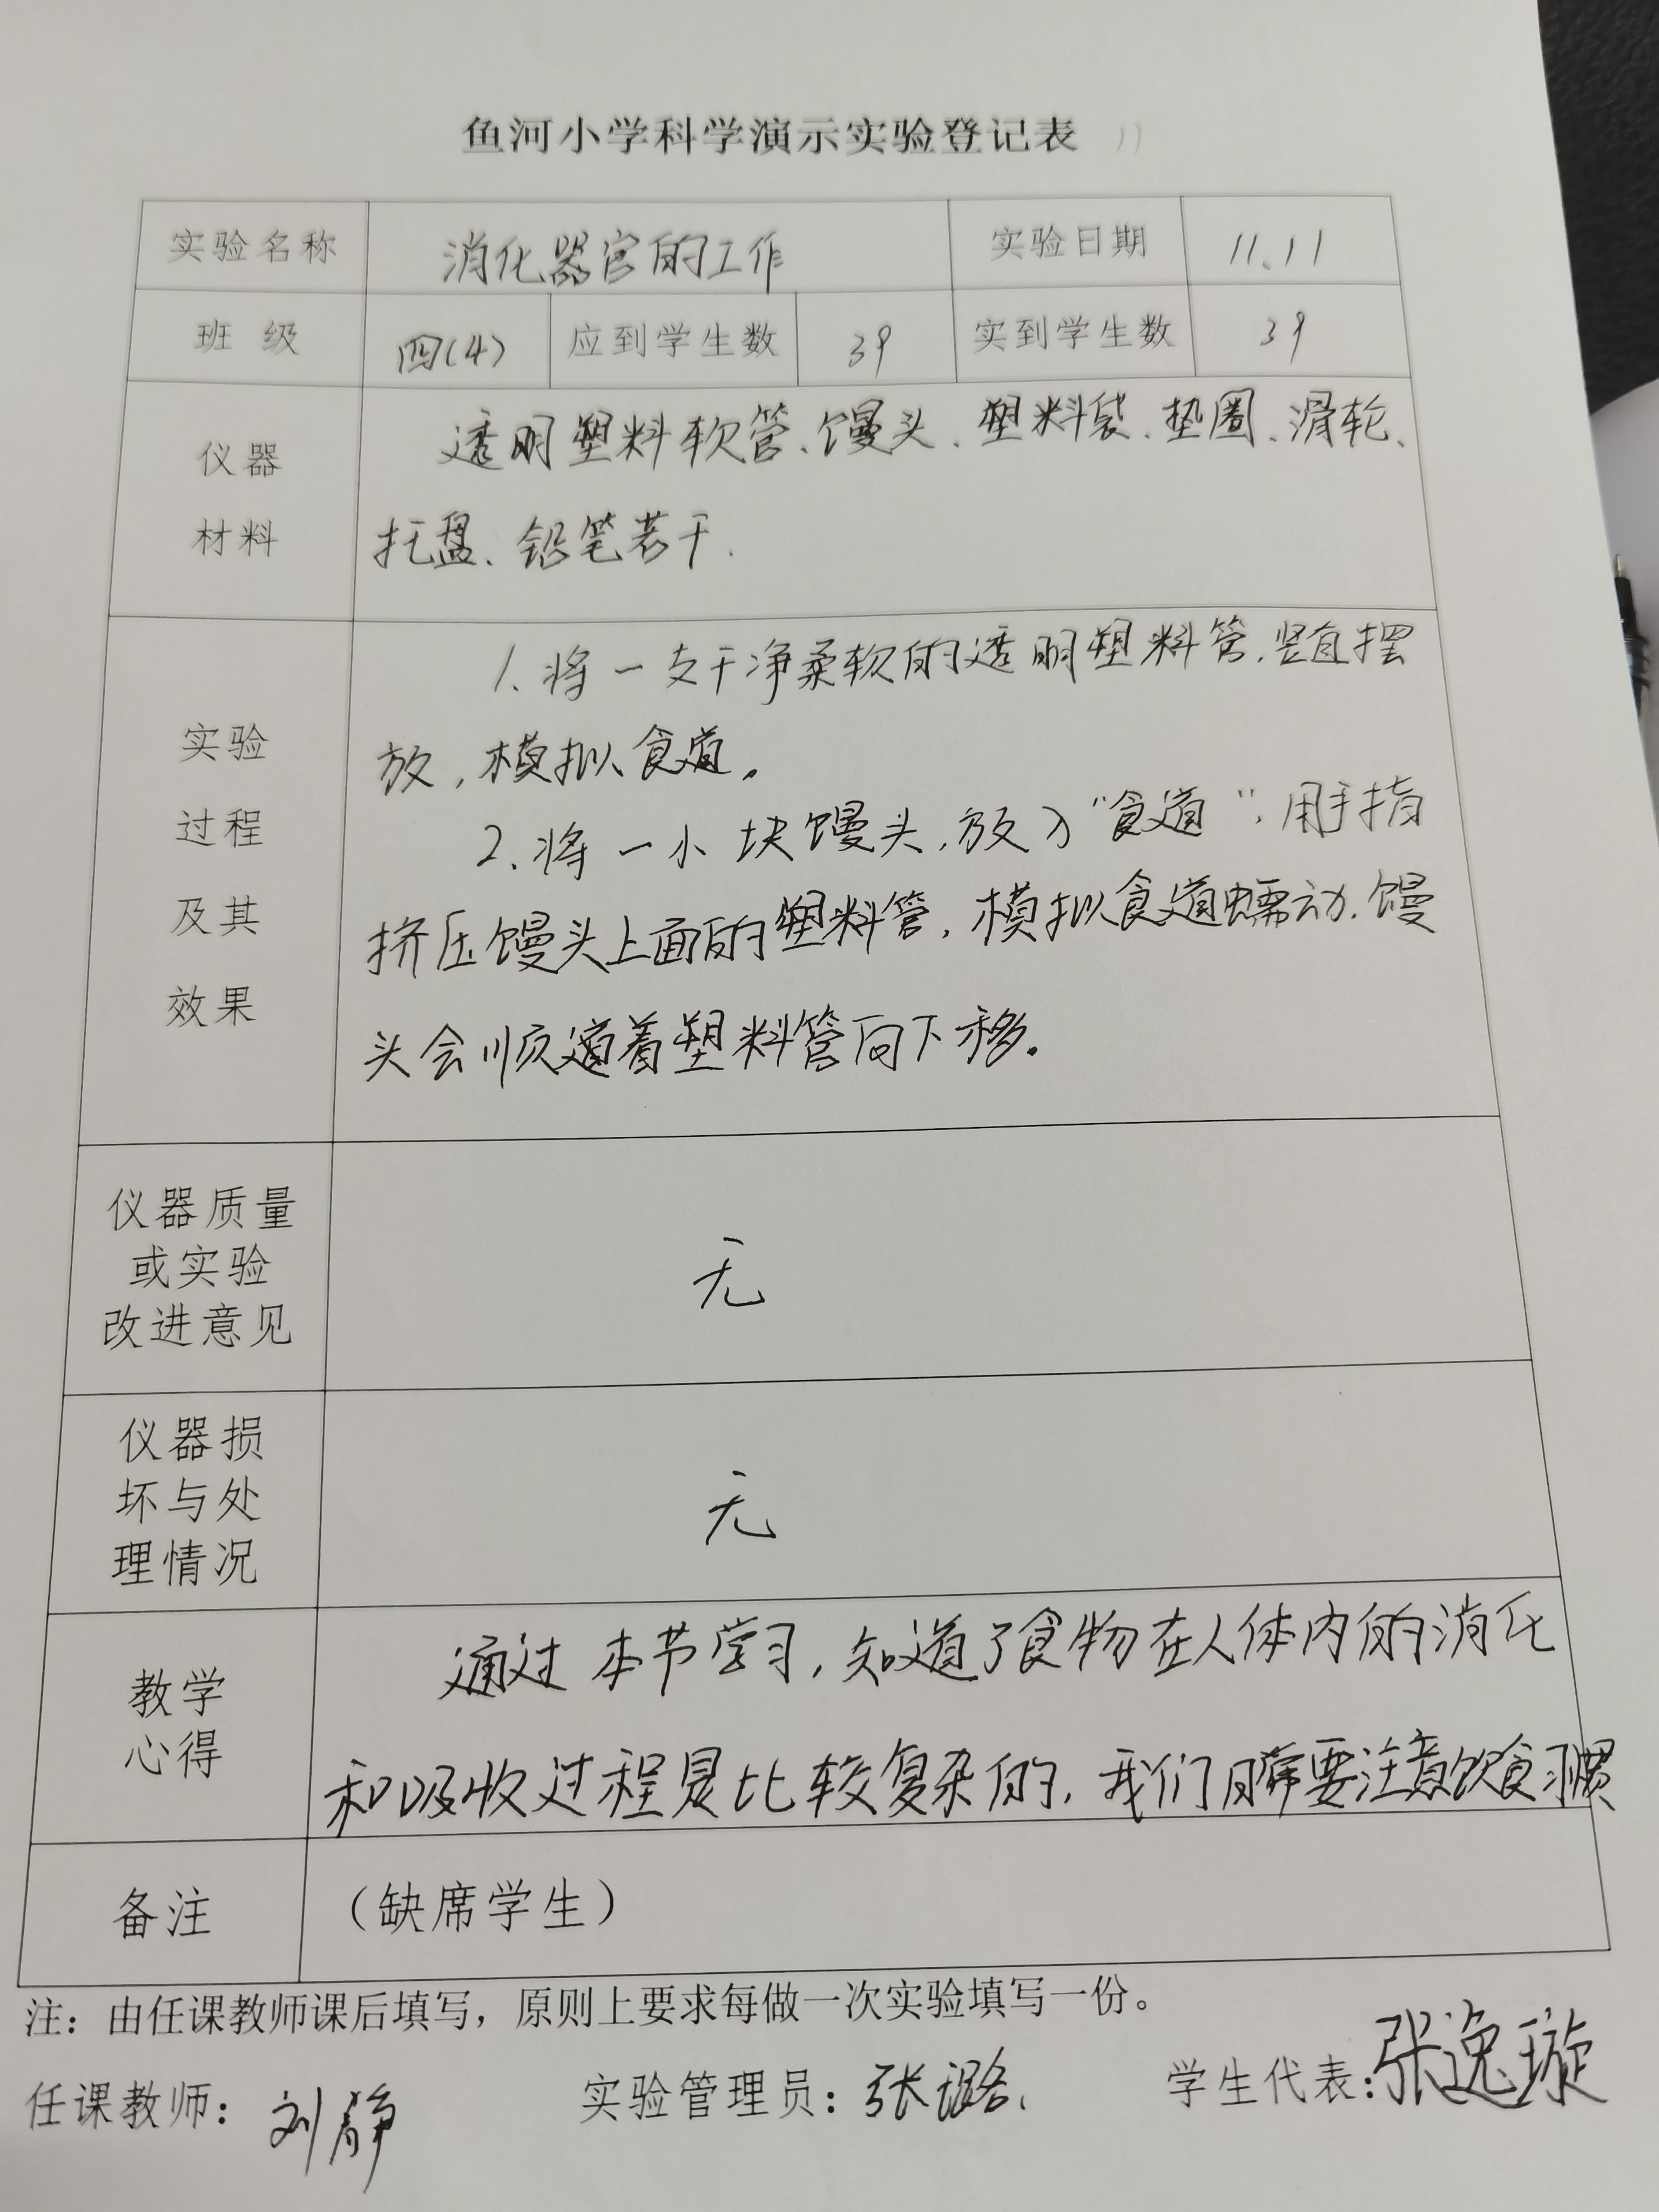 鱼河小学科学演示实验登记表 11
实验名称 消化器官的工作 实验日期 11.11
班 级 四(4) 应到学生数 39 实到学生数 39
仪器
材料
透明塑料软管、馒头、塑料袋、垫圈、滑轮、
托盘、铅笔若干.
实验
过程
及其
效果
1、将一支干净柔软的透明塑料管,竖直摆
放,模拟食道。
2、将一小块馒头,放入“食道”,用手指
挤压馒头上面的塑料管,模拟食道蠕动.馒
头会顺道着塑料管向下移。
仪器质量
或实验
改进意见
无
仪器损
坏与处
理情况
无
教学
心得
通过本节学习,知道了食物在人体内的消化
和吸收过程是比较复杂的,我们需要注意饮食习惯
备注 （缺席学生）
注：由任课教师课后填写，原则上要求每做一次实验填写一份。
任课教师：刘静 实验管理员：张璐 学生代表：张逸璇